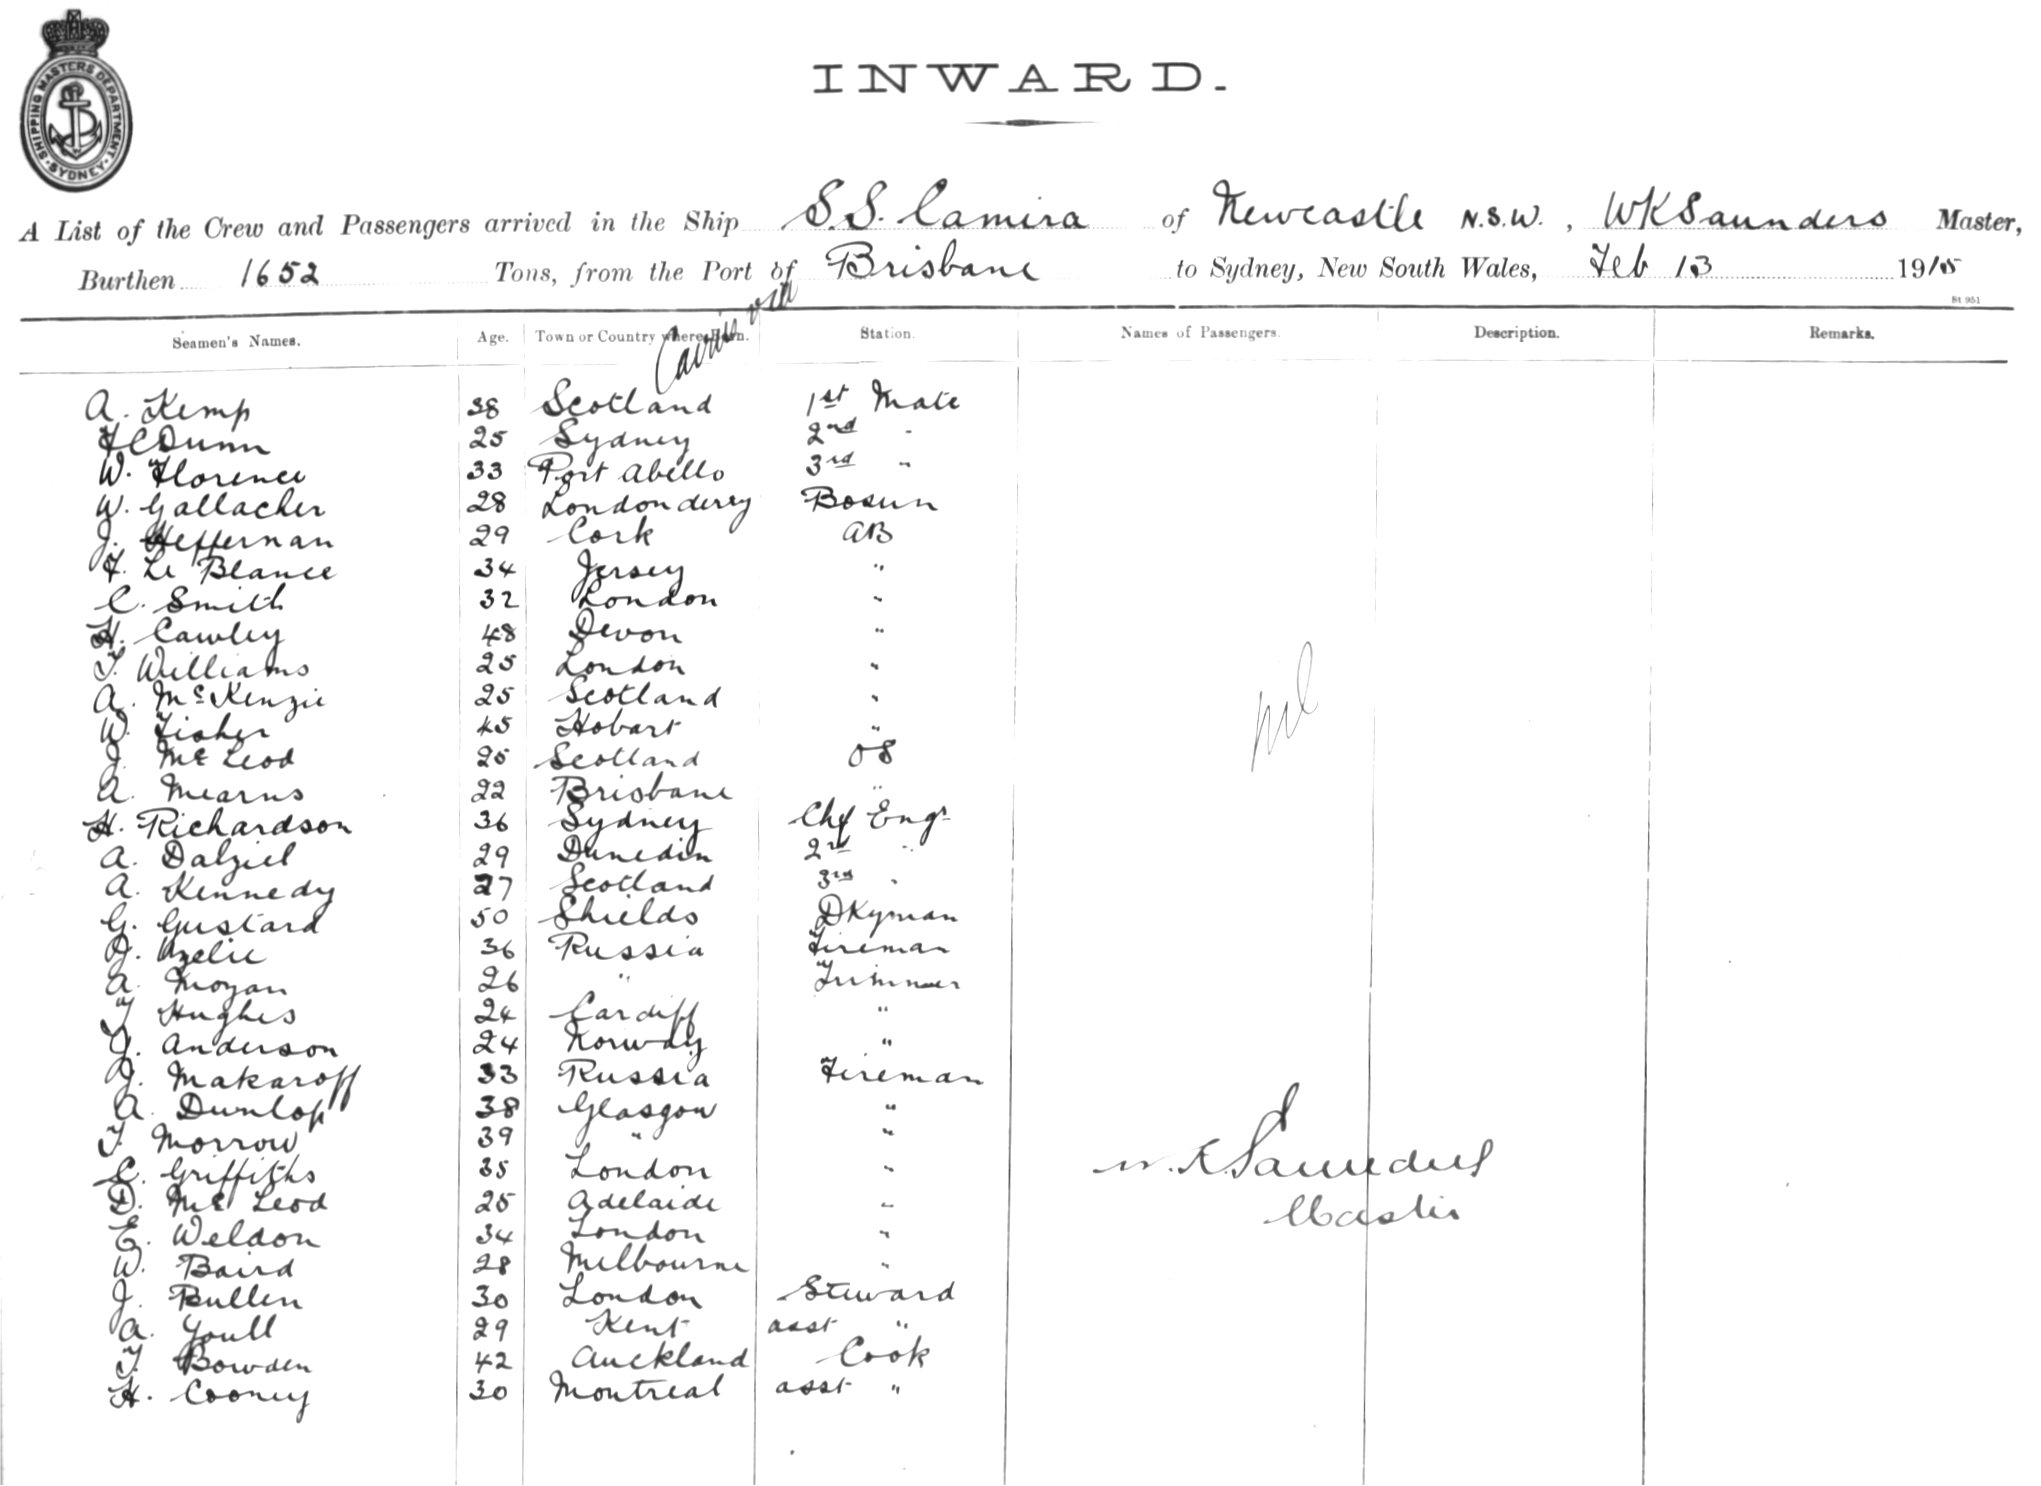 SHIPPING MASTERS DEPARTMENT · SYDNEY ·
INWARD.
A List of the Crew and Passengers arrived in the Ship S.S. Camira of Newcastle N.S.W., WKSaunders Master,
Burthen 1652 Tons, from the Port of Brisbane to Sydney, New South Wales, Feb 13 1915
St 951
Seamen's Names. Age. Town or Country where Born. Station. Names of Passengers. Description. Remarks.
A. Kemp 38 Scotland 1st Mate
F C Dunn 25 Sydney 2nd "
W. Florence 33 Port Abello 3rd "
W. Gallacher 28 Londonderry Bosun
J. Heffernan 29 Cork AB
F. Le Blance 34 Jersey "
C. Smith 32 London "
H. Cawley 48 Devon "
T. Williams 25 London "
A. McKenzie 25 Scotland "
W. Fisher 45 Hobart "
J. McLeod 25 Scotland OS
A. Mearns 22 Brisbane "
H. Richardson 36 Sydney Chf Engr
A. Dalziel 29 Dunedin 2nd "
A. Kennedy 27 Scotland 3rd "
G. Gustard 50 Shields DKyman
J. 36 Russia Fireman
A. Moyan 26 " Trimmer
T Hughes 24 Cardiff "
J. Anderson 24 Norway "
J. Makaroff 33 Russia Fireman
A. Dunlop 38 Glasgow "
T. Morrow 39 " "
C. Griffiths 35 London "
D. McLeod 25 Adelaide "
E. Weldon 34 London "
W. Baird 28 Melbourne "
J. Bullen 30 London Steward
A. Youll 29 Kent asst "
T. Bowden 42 Auckland Cook
H. Cooney 30 Montreal asst "
nil
W. K. Saunders
Master